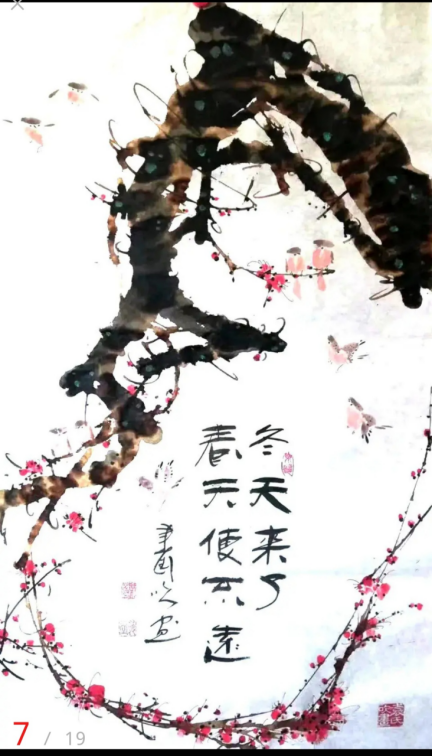 冬天来了
春天便不远
7 / 19